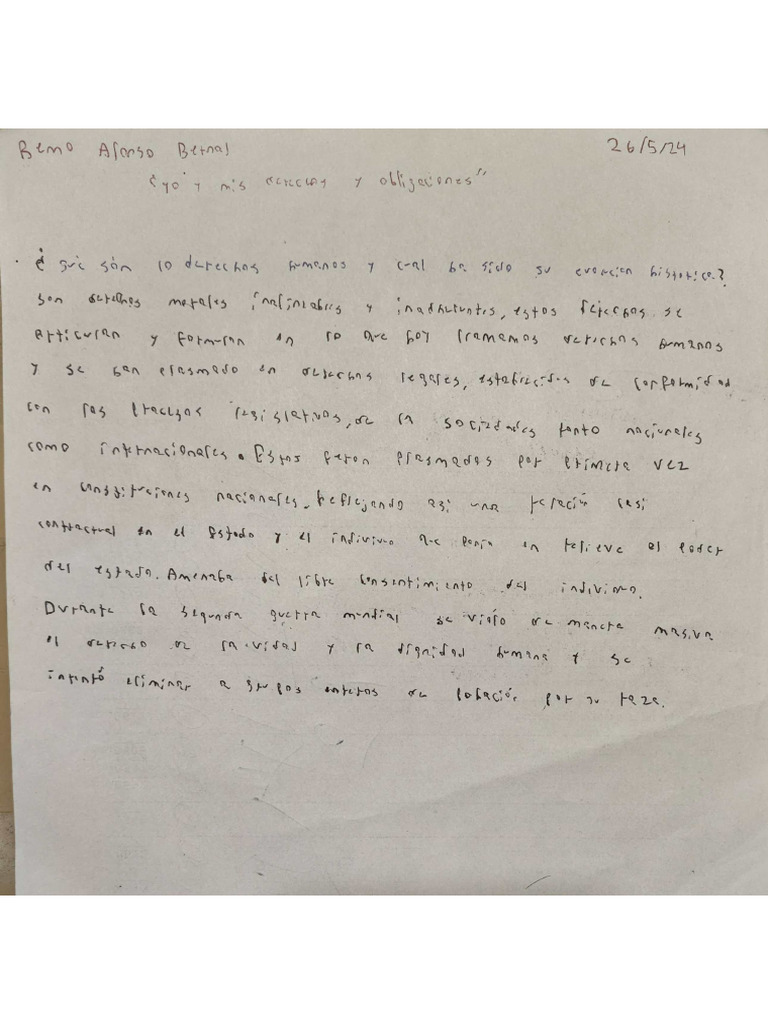 Bemo Afonso Bernal 26/5/24
"yo y mis derechos y obligaciones"
· ¿ Qué són lo derechos humanos y cual ha sido su evorcion historica?
son derechos morales inaliniables y , estos derechos se
articuran y forman en lo que hoy llamamos derechos humanos
y se han plasmado en derechos legales, establecidos de conformidad
con las legislativos, de la sociedades tanto nacionales
como internacionales. Estos feron plasmados por primera vez
en constituciones nacionales. Reflejando asi una relación casi
contractual en el Estado y el individuo que ponia en relieve el poder
del estado. Amenaba del libre consentimiento del individuo.
Durante la segunda guerra mundial se violo de manera masiva
el derecho de la vidad y la dignidad humana y se
intentó eliminar a grupos enteros de población por su raza.